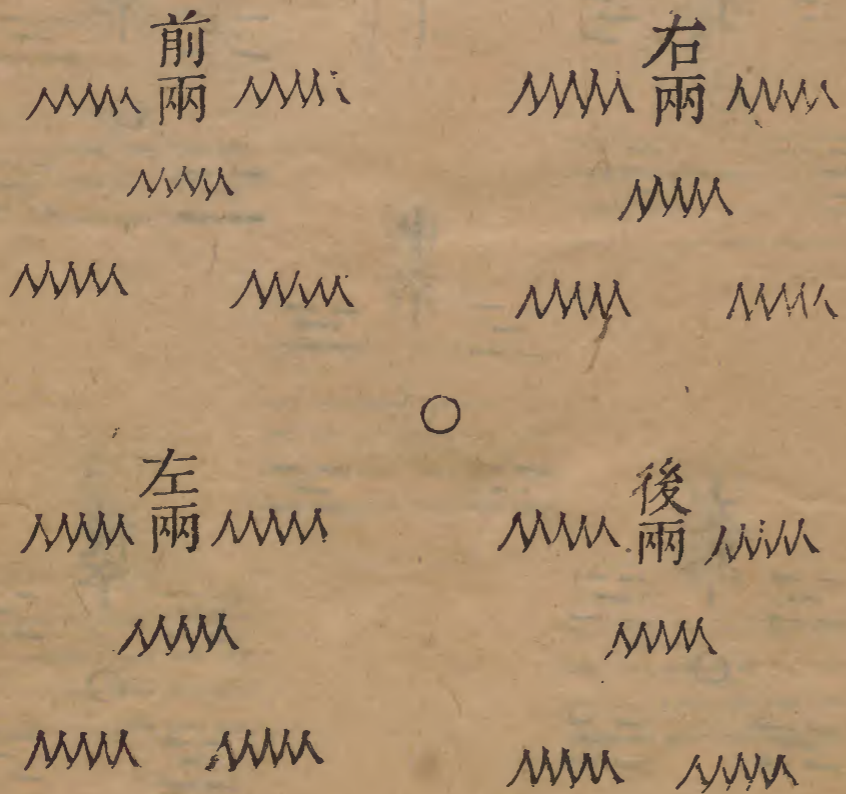 前兩
右兩
左兩
後兩